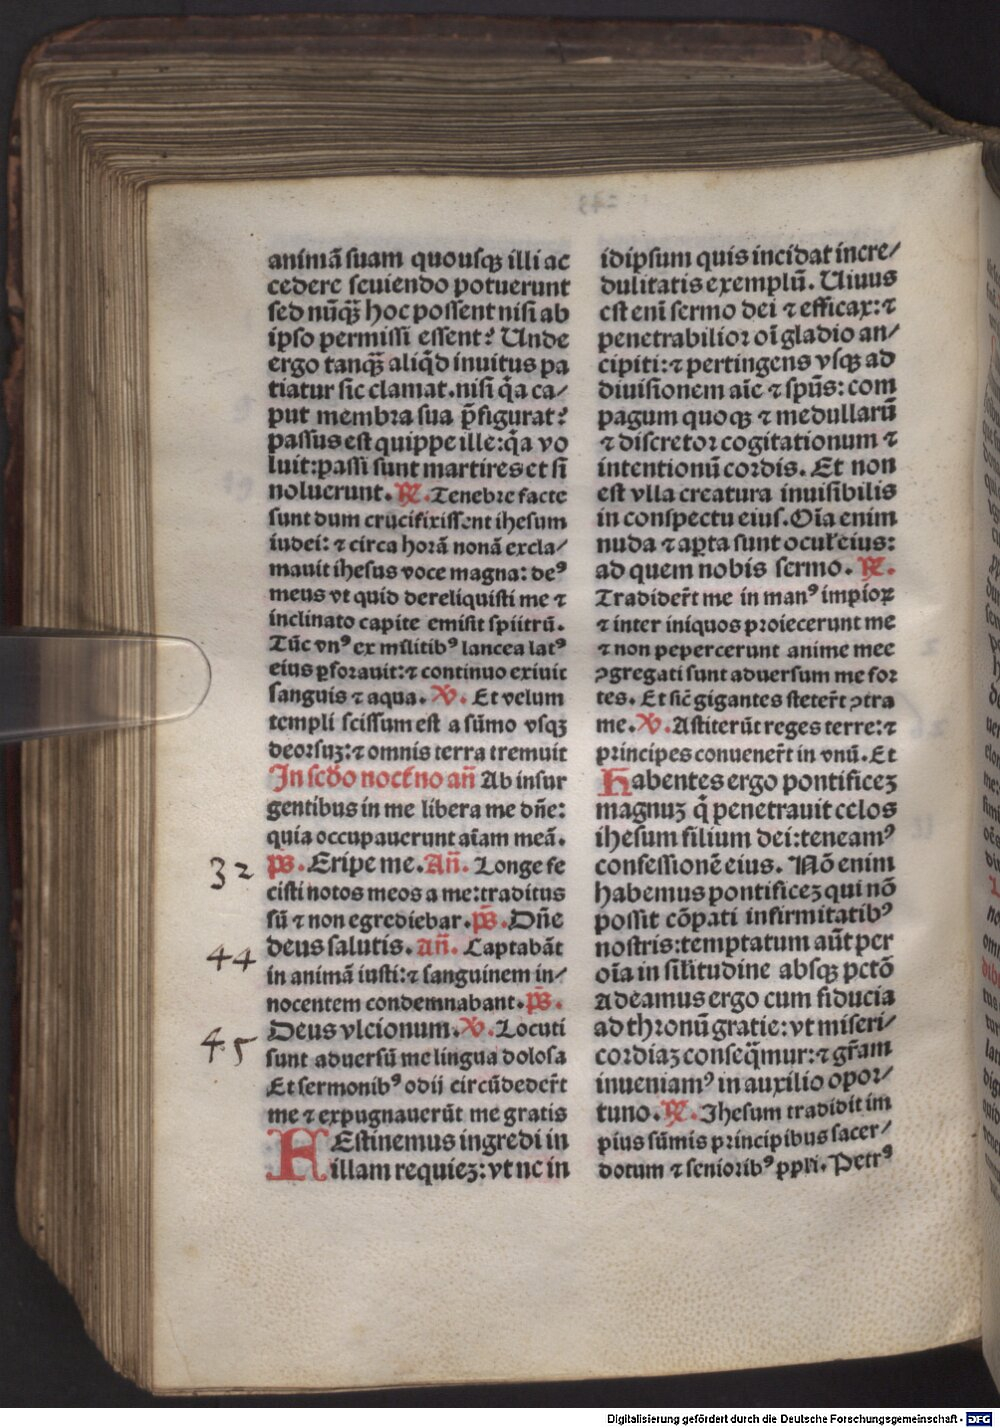 animã suam quousqꝫ illi ac
cedere seuiendo potuerunt
sed nũqꝫ̃ hoc possent nisi ab
ipso permissi essent? Unde
ergo tanqꝫ̃ aliq̃d inuitus pa
tiatur sic clamat.nisi q̃a ca/
put membra sua p̃figurat?
passus est quippe ille:q̃a vo
luit:passi sunt martires et si
noluerunt. ℟. Tenebre facte
sunt dum crucifixissent ihesum
iudei: ⁊ circa horã nonã excla/
mauit ihesus voce magna: deꝰ
meus vt quid dereliquisti me ⁊
inclinato capite emisit spiitrũ.
Tũc vnꝰ ex militibꝰ lancea latꝰ
eius ꝑforauit:⁊ continuo exiuit
sanguis ⁊ aqua. ℣. Et velum
templi scissum est a sũmo vsqꝫ
deorsuꝫ:⁊ omnis terra tremuit
In scḋo noct̃no añ Ab insur
gentibus in me libera me dñe:
quia occupauerunt aĩam meã.
32 p̃s. Eripe me. Añ. Longe fe
cisti notos meos a me:traditus
sũ ⁊ non egrediebar. p̃s. Dñe
44 deus salutis. añ. Captabãt
in animã iusti:⁊ sanguinem in/
nocentem condemnabant. p̃s.
45 Deus vlcionum. ℣. Locuti
sunt aduersũ me lingua dolosa
Et sermonibꝰ odii circũdeder̃t
me ⁊ expugnauerũt me gratis
FEstinemus ingredi in
illam requieꝫ:vt nc in
idipsum quis incidat incre/
dulitatis exemplũ. Uiuus
est eni sermo dei ⁊ efficax:⁊
penetrabilior oĩ gladio an/
cipiti:⁊ pertingens vsqꝫ ad
diuisionem aĩe ⁊ sp̃us: com
pagum quoqꝫ ⁊ medullarũ
⁊ discretor cogitationum ⁊
intentionũ cordis. Et non
est vlla creatura inuisibilis
in conspectu eius. Oĩa enim
nuda ⁊ aꝑta sunt ocul̛ eius:
ad quem nobis sermo. ℟.
Tradider̃t me in manꝰ impioꝝ
⁊ inter iniquos proiecerunt me
⁊ non pepercerunt anime mee
ꝯgregati sunt aduersum me for
tes. Et sic̃ gigantes steter̃t ꝯtra
me. ℣. Astiterũt reges terre:⁊
principes conuener̃t in vnũ. Et
Habentes ergo pontificeꝫ
magnuꝫ q̃ penetrauit celos
ihesum filium dei:teneamꝰ
confessionẽ eius. Nõ enim
habemus pontificeꝫ qui nõ
possit cõpati infirmitatibꝰ
nostris:temptatum aũt per
oĩa in sil̃itudine absqꝫ pctõ
Adeamus ergo cum fiducia
ad thronũ gratie: vt miseri/
cordiaꝫ conseq̃mur:⁊ gr̃am
inueniamꝰ in auxilio opor/
tuno. ℟. Ihesum tradidit im
pius sũmis principibus sacer/
dotum ⁊ senioribꝰ ppl̃i. Petrꝰ
Digitalisierung gefördert durch die Deutsche Forschungsgemeinschaft - DFG